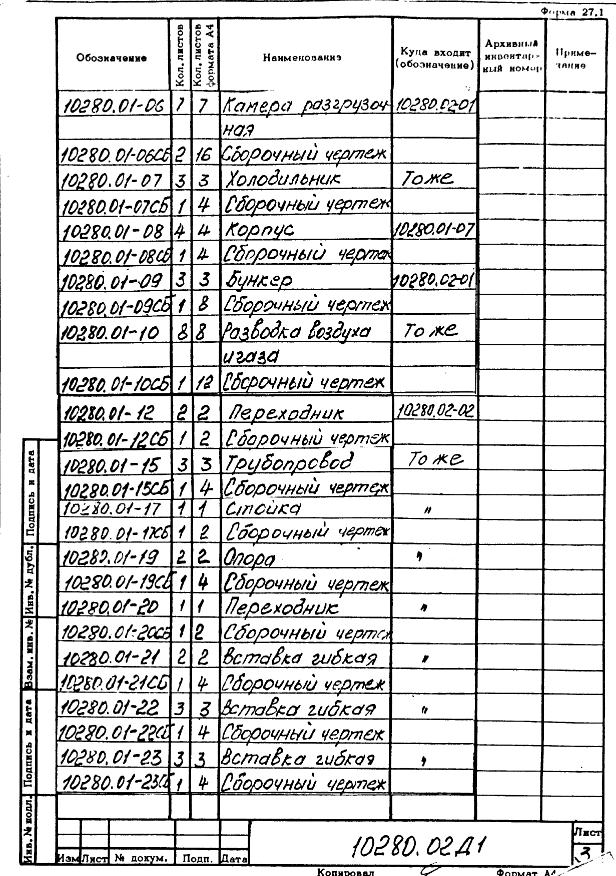 Форма 27.1
Обозначение Кол. листов Кол. листов формата А4 Наименование Куда входит (обозначение) Архивный инвентарный номер Примечание
10280.01-06 7 7 Камера разгрузоч- 10280.02-01
ная
10280.01-06СБ 2 16 Сборочный чертеж
10280.01-07 3 3 Холодильник То же
10280.01-07СБ 1 4 Сборочный чертеж
10280.01-08 4 4 Корпус 10280.01-07
10280.01-08СБ 1 4 Сборочный чертеж
10280.01-09 3 3 Бункер 10280.02-01
10280.01-09СБ 1 8 Сборочный чертеж
10280.01-10 8 8 Разводка воздуха То же
и газа
10280.01-10СБ 1 12 Сборочный чертеж
10280.01-12 2 2 Переходник 10280.02-02
10280.01-12СБ 1 2 Сборочный чертеж
10280.01-15 3 3 Трубопровод То же
10280.01-15СБ 1 4 Сборочный чертеж
10280.01-17 1 1 Стойка "
10280.01-17СБ 1 2 Сборочный чертеж
10280.01-19 2 2 Опора "
10280.01-19СБ 1 4 Сборочный чертеж
10280.01-20 1 1 Переходник "
10280.01-20СБ 1 2 Сборочный чертеж
10280.01-21 2 2 Вставка гибкая "
10280.01-21СБ 1 4 Сборочный чертеж
10280.01-22 3 3 Вставка гибкая "
10280.01-22СБ 1 4 Сборочный чертеж
10280.01-23 3 3 Вставка гибкая "
10280.01-23СБ 1 4 Сборочный чертеж
Подпись и дата
Инв. № дубл.
Взам. инв. №
Подпись и дата
Инв. № подл.
Изм Лист № докум. Подп. Дата
10280.02Д1
Лист
3
Копировал Формат А4